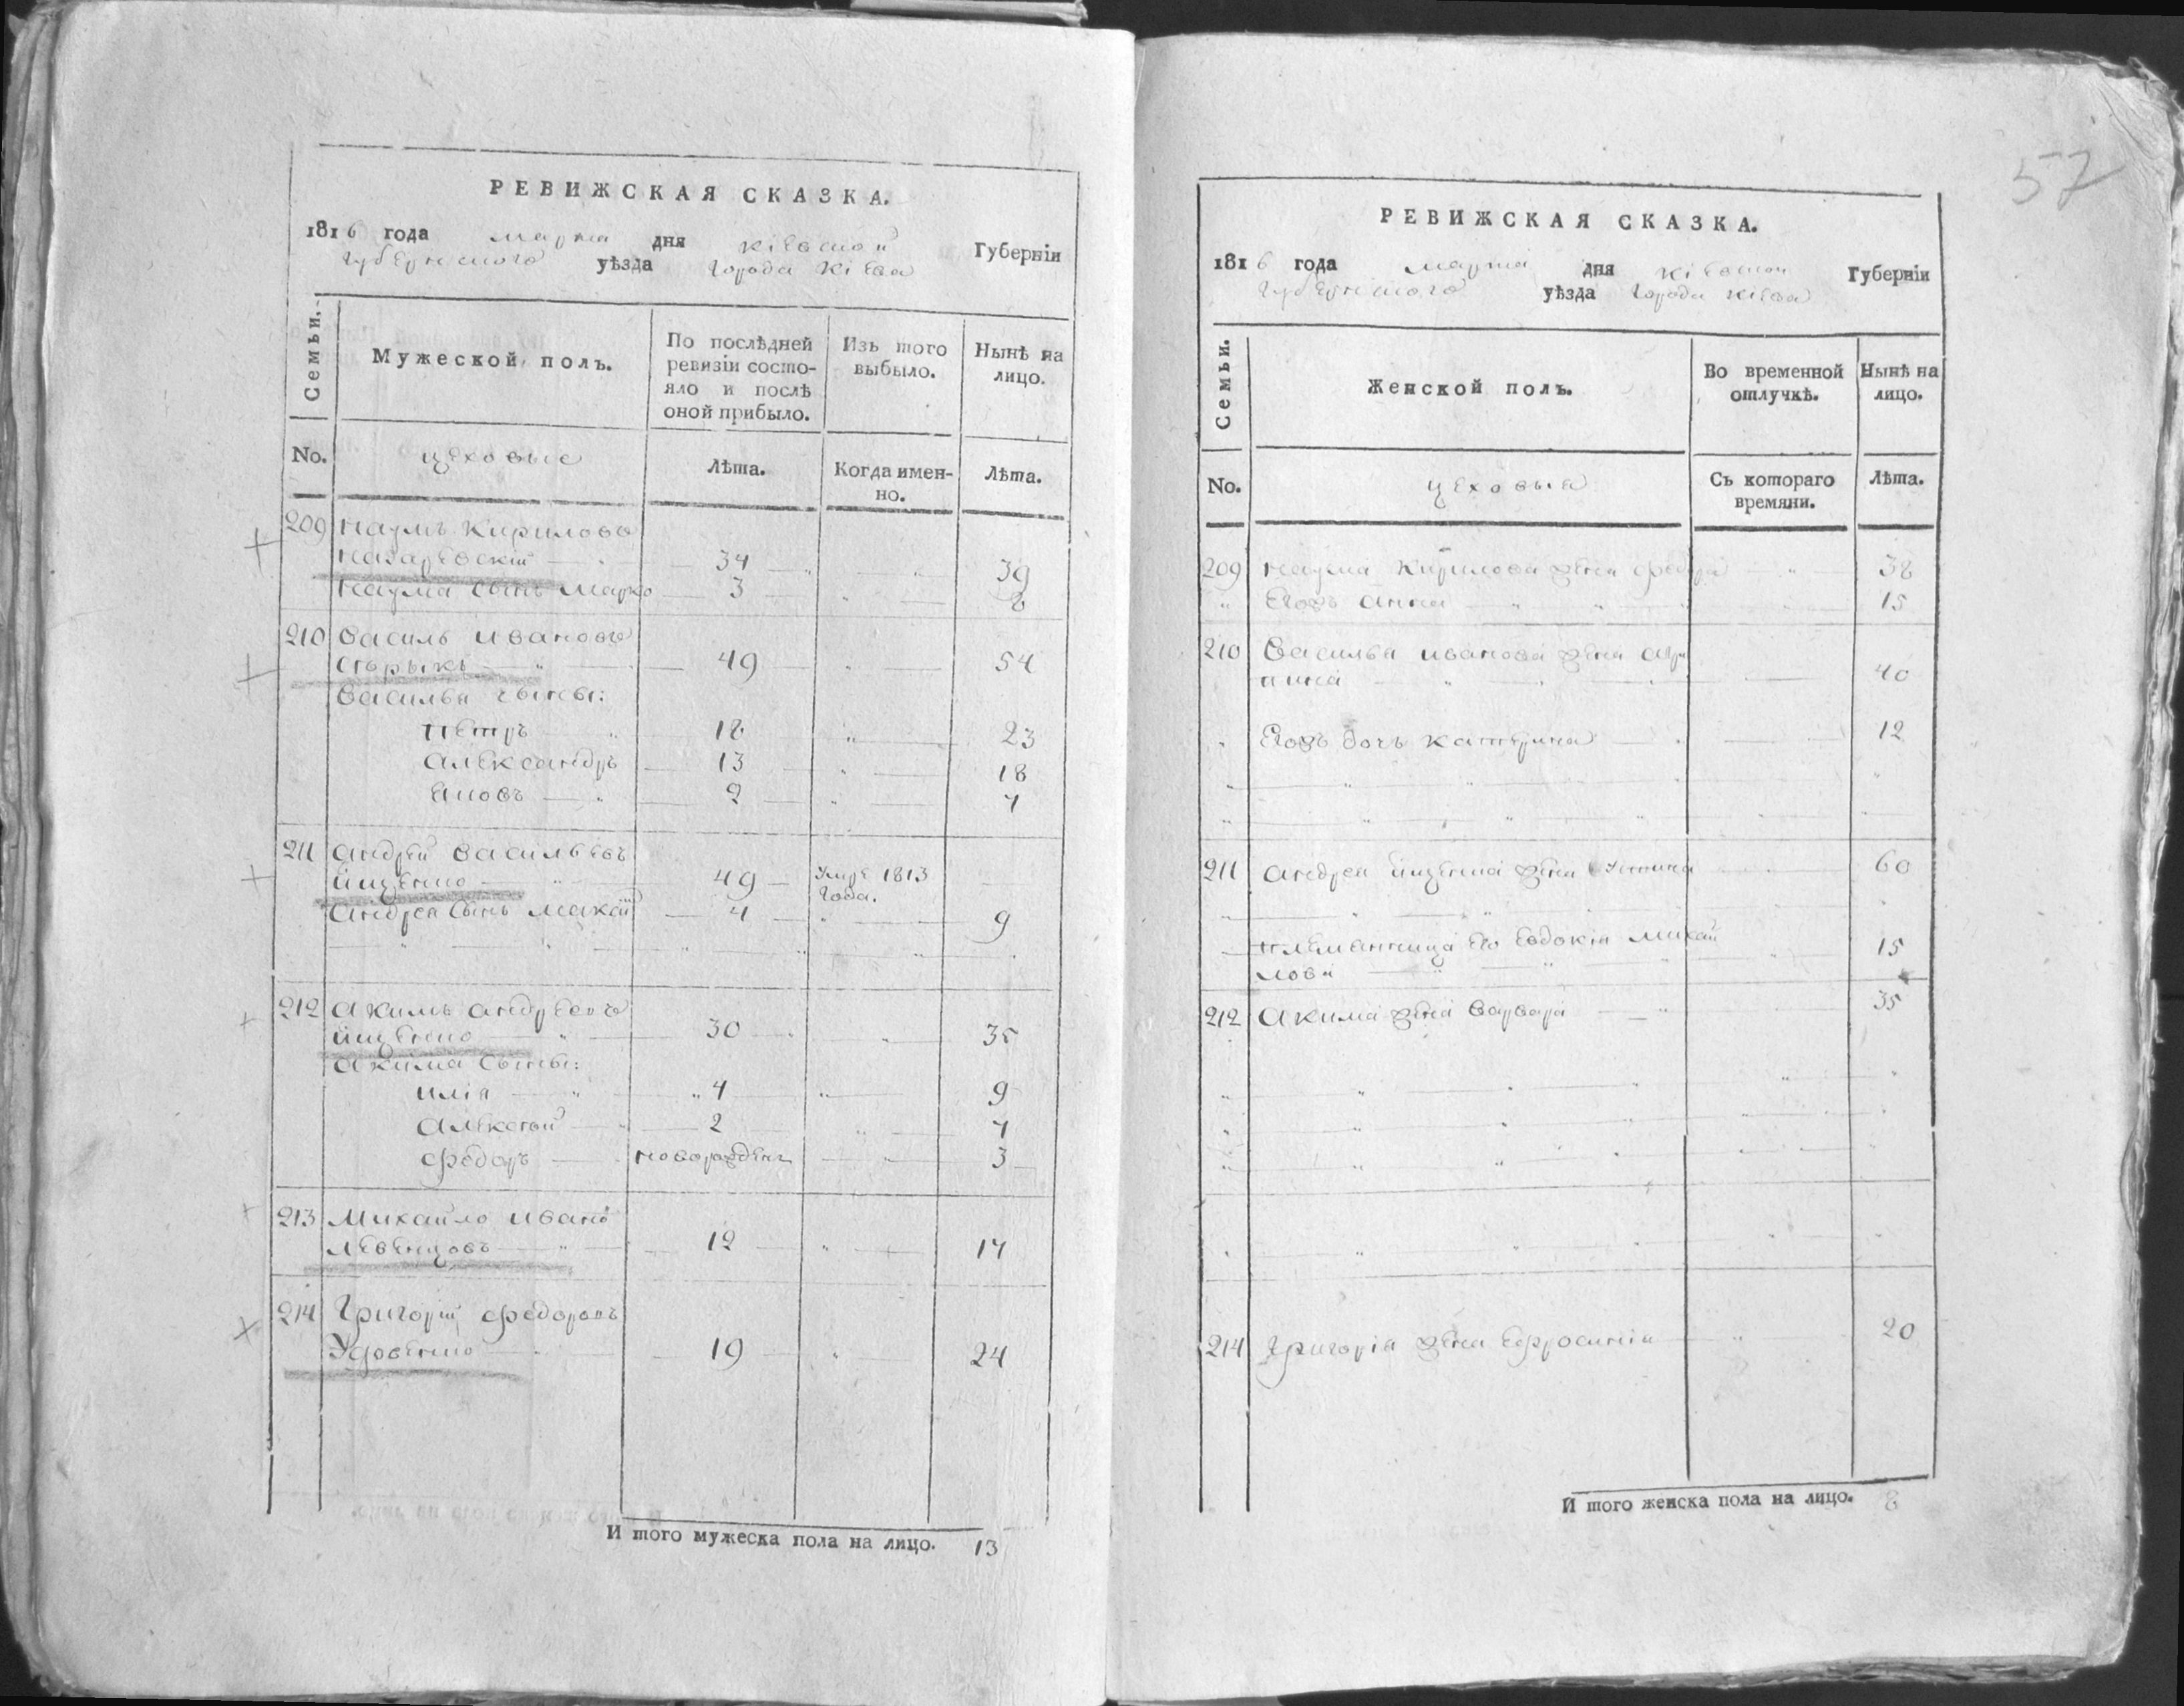 РЕВИЖСКАЯ СКАЗКА.
1816 года марта дня Кіевской Губерніи
Губернского уѣзда Города Кіева
Семьи.
Мужеской полъ.
По послѣдней ревизіи состо-
яло и послѣ
оной прибыло.
Изъ того
выбыло.
Нынѣ на
лицо.
No.
цеховые
Лѣта.
Когда имен-
но.
Лѣта.
209 Наумъ Кириловъ
Назаревскій 34 39
Наума сынъ Марко 3 8
210 Василь Ивановъ
49 54
Василья сыны:
Петръ 18 23
Александръ 13 18
Яковъ 2 7
211 Андрей Васильевъ
Ищенко 49 Умре 1813
года.
Андрея сынъ 4 9
212 Акимъ Андреевъ
Ищенко 30 35
Акима сыны:
Илія 4 9
Алексей 2 7
Федоръ новорожденъ 3
213 Михайло Иванов
Левенцовъ 12 17
214 Григорій Федоровъ
Удовенко 19 24
И того мужеска пола на лицо. 13
57
РЕВИЖСКАЯ СКАЗКА.
1816 года марта дня Кіевской Губерніи
Губернского уѣзда Города Кіева
Семьи.
Женской полъ.
Во временной
отлучкѣ.
Нынѣ на
лицо.
No.
цеховые
Съ котораго
времяни.
Лѣта.
209 Наума Кирилова жена Федора 38
Ихъ Анна 15
210 Василья Иванова жена Агри
пина 40
Ихъ дочь Катерина 12
211 Андрея Ищенка жена Устина 60
племянница его Евдокія Михай
лова 15
212 Акима жена Варвара 35
214 Григорія жена Ефросинія 20
И того женска пола на лицо. 8